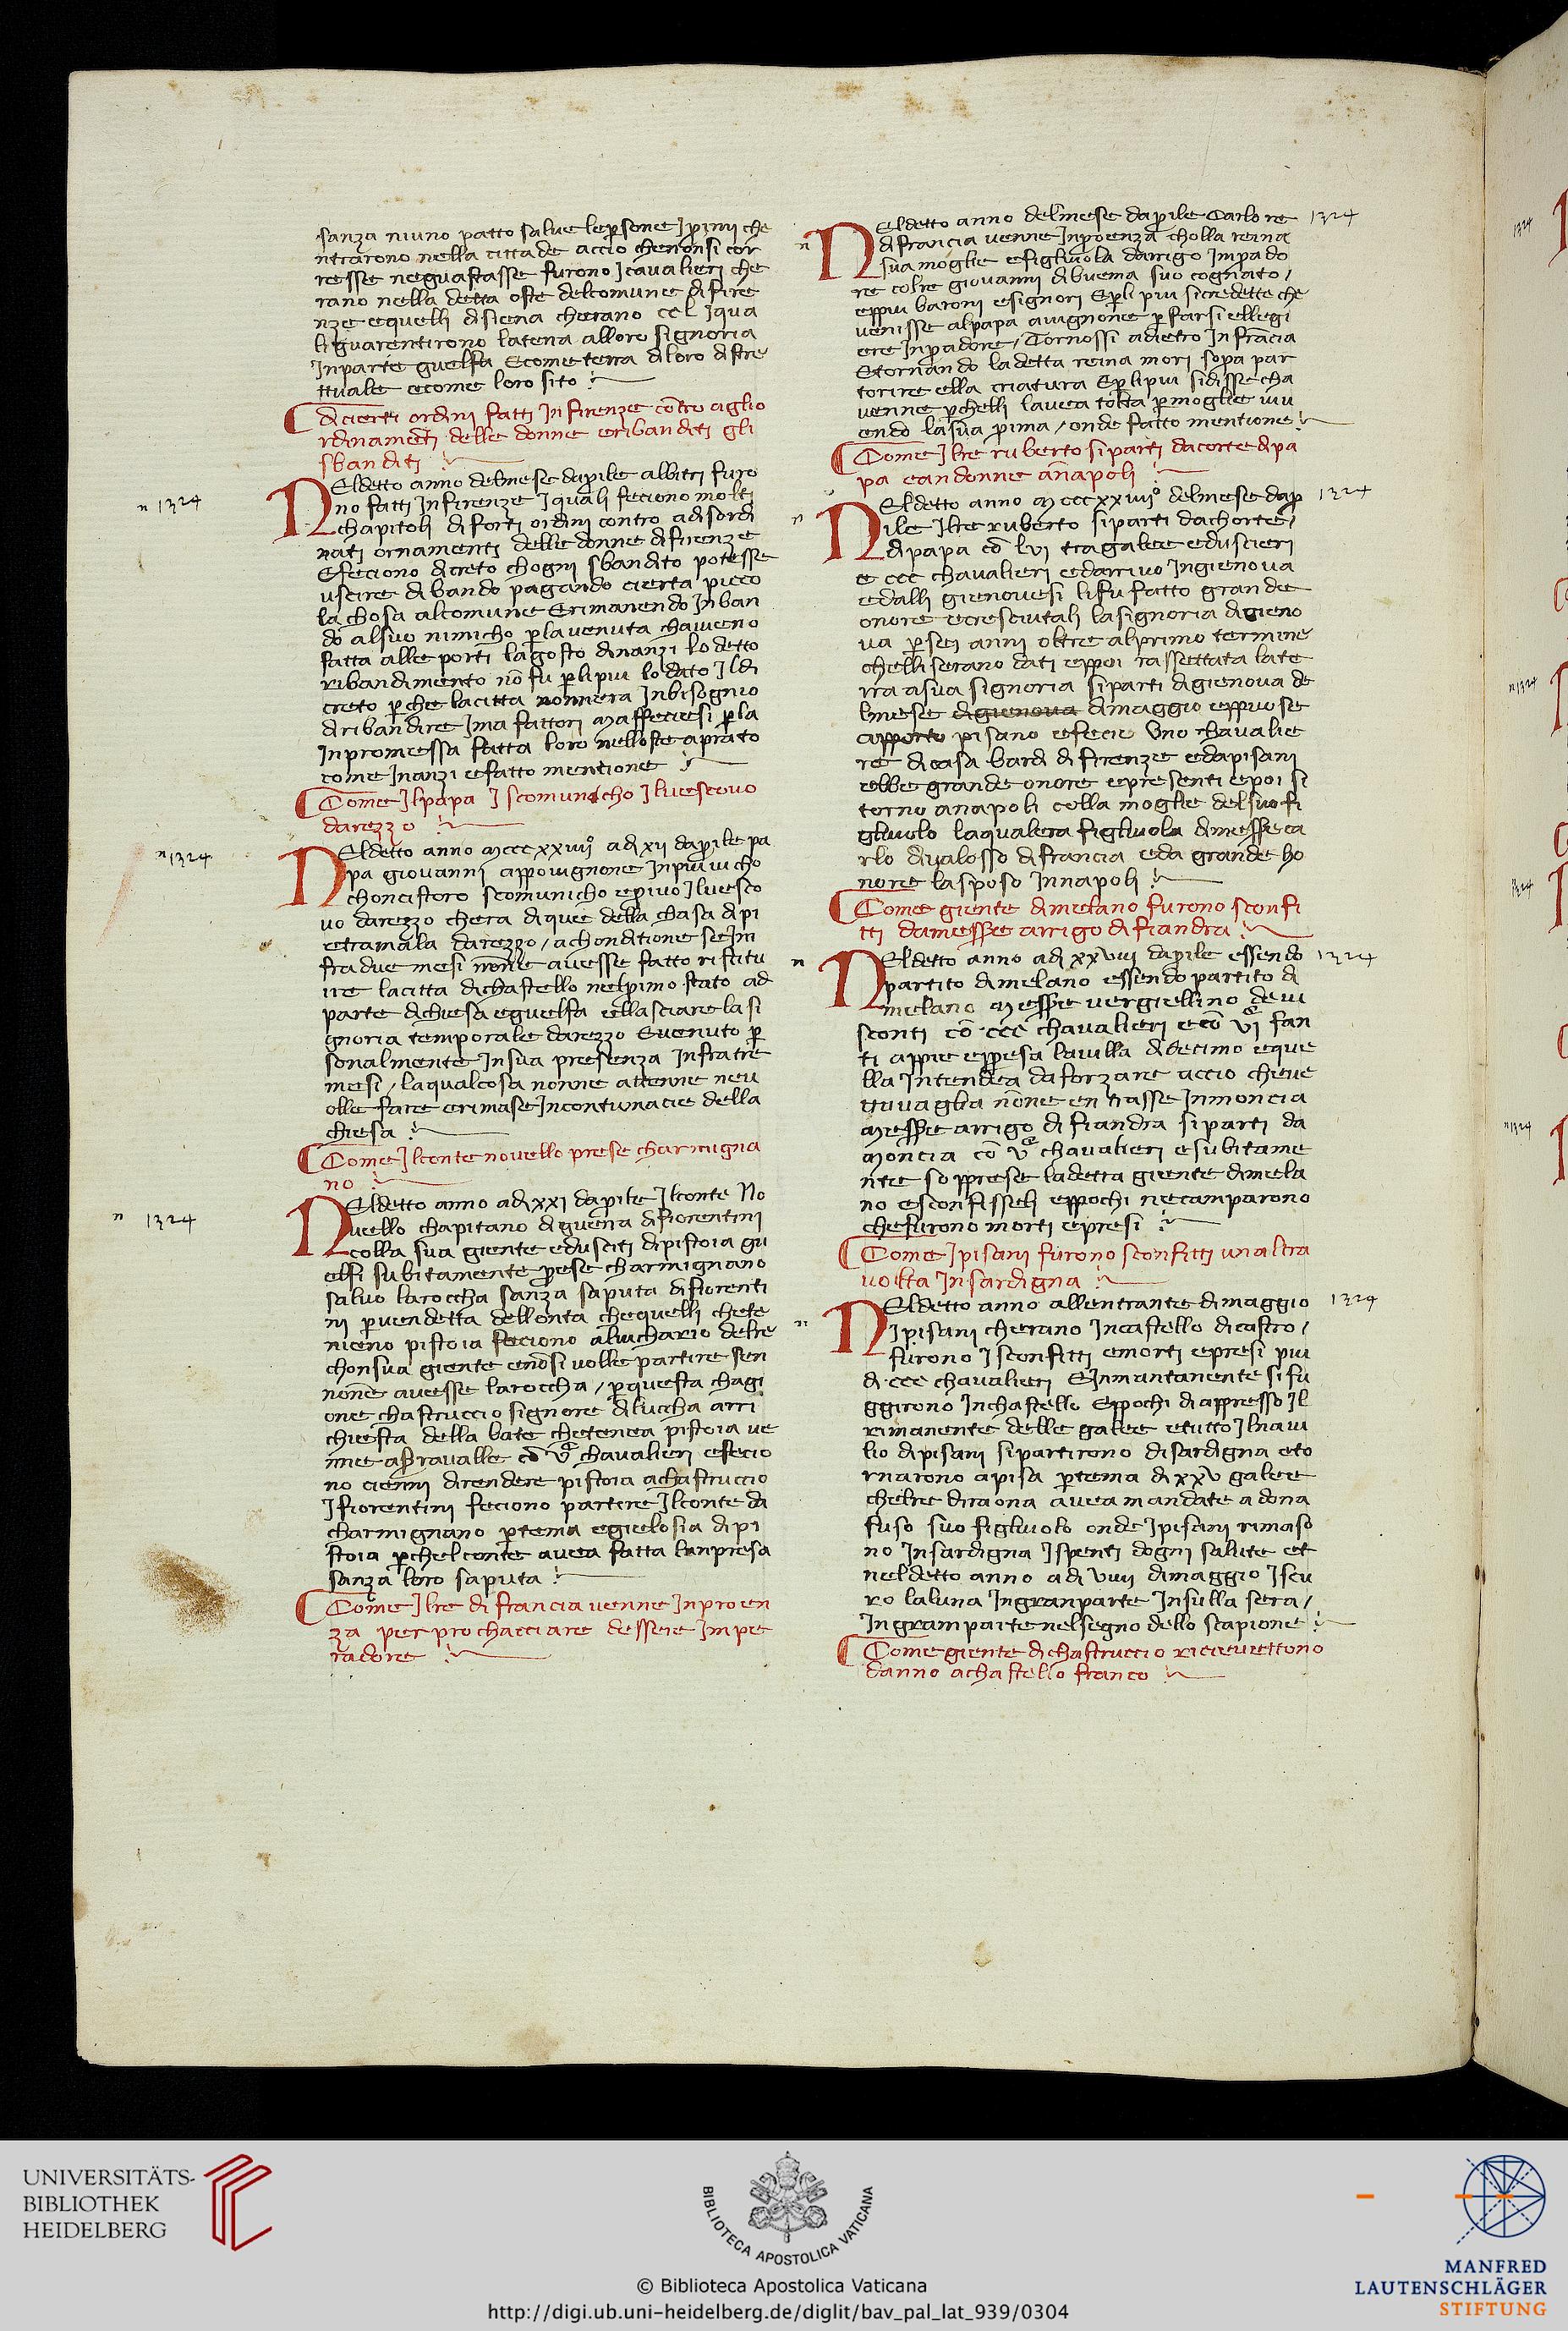 sanza niuno patto salve le persone J primi che
ntrarono nella cittade accio chenonsi cor
resse neguastasse furono J cavalieri che
rano nella detta oste delcomune di fire
nze equelli disiena cherano ccl Jqua
li guarentirono latena alloro signoria
Inparte guelfa Ecome terra diloro distre
ttuale ecome loro sito
dicierti ordini fatti Infirenze contro aglio
rdinamenti delle donne eribanditi gli
sbanditi
n 1324
NEldetto anno delmese daprile albitri furo
no fatti Infirenze Jquali feciono molti
chapitoli di forti ordini contro adisordi
nati ornamenti delle donne difirenze
Efeciono dicreto chogni sbandito potesse
uscire dibando pagando cierta picco
la chosa alcomune Erimanendo Inban
do alsuo nimicho perlavenuta chaveno
fatta alle porti lagosto dinanzi lo detto
ribandimento no fu perlipiu lodato Ildi
creto perche lacitta nonnera Inbisognio
diribandire Jma fattori Maffeciesi perla
Inpromessa fatta loro nelloste aprato
come Inanzi efatto mentione
Come Jlpapa Jscomunicho Jlvescovo
darezzo
n 1324
NEldetto anno mcccxxiiij° adi xij daprile pa
pa giovanni appovignone Inpiuvicho
choncistoro scomunicho eprivo Jlvesco
vo darezzo chera dique della chasa dipi
etramala darezzo / achonditione seIn
fradue mesi nonne avesse fatto ristitu
ire lacitta dichastello nelprimo stato ad
parte dichiesa eguelfa ellasciare lasi
gnoria temporale darezzo Evenuto per
sonalmente Insua presenza Infratre
mesi / laqualcosa nonne attenne nev
olle fare erimase Incontumacie della
chiesa
Come Jlconte novello prese charmigna
no
n 1324
NEldetto anno adi xxi daprile Jlconte No
vello chapitano diguerra difiorentini
colla sua giente edusciti dipistoia gu
elfi subitamente prese charmignano
salvo laroccha sanza saputa difiorenti
ni pervendetta dellonta chequelli chete
nieno pistoia feciono alvichario delre
chonsua giente enonsi volle partire sen
nonne avesse laroccha / perquesta chagi
one chastruccio signore diluccha arri
chiesta della bate chetenea pistoia ve
nne aserravalle con Vc chavalieri efecio
no cienni direndere pistoia achastruccio
J fiorentini feciono partire Jlconte da
charmignano pertema egielosia dipi
stoia perchelconte avea fatta lanpresa
sanza loro saputa
Come Jlre di francia venne Inproen
za per prochacciare dessere Impe
radore
n 1324
NEldetto anno delmese daprile Carlo re
di francia venne Inproenza cholla reina
sua moglie efigliuola darrigo Impado
re colre giovanni dibuema suo cognato /
eppiu baroni esignori Eperli piu sicredette che
venisse alpapa avignone per farsi ellegi
ere Inpadore / Tornossi adietro Infrancia
Etornando ladetta reina mori sopa par
torire ella criatura Eperlipiu sidisse cha
venne perchelli lavea tolta permoglie viv
endo lasua prima / onde fatto mentione
Come Jlre ruberto siparti dacorte dipa
pa eandonne annapoli
n 1324
NEldetto anno mcccxxiiij° delmese dap
rile Jlre ruberto siparti dachorte /
dipapa con lvi tragalee eduscieri
e ccc chavalieri edarrivo Ingienova
edalli gienovesi lifu fatto grande
onore ecresciutali lasignoria digieno
va persei anni oltre alprimo termine
chelli serano dati eppoi rassettata late
rra asua signoria siparti digienova de
lmese digienova dimaggio eppuose
apporto pisano efecie Uno chavalie
re dicasa bardi difirenze edapisani
ebbe grande onore epresenti epoi si
torno anapoli colla moglie delsuo fi
gliuolo laqualera figliuola dimesserca
rlo divalosso difrancia eda grande ho
nore lasposo Innapoli
Come giente dimelano furono sconfi
tti damessere arrigo difiandra
n 1324
NEldetto anno adi xxviii daprile essendo
partito dimelano essendo partito di
melano Messere vergiellino de vi
sconti con ccc chavalieri econ VJ fan
ti appie eppresa lavilla didecimo eque
lla Intendea daforzare accio cheve
ttuvaglia nonne entrasse Inmoncia
Messere arrigo di fiandra siparti da
Moncia con Vc chavalieri esubitame
nte soppresse ladetta giente dimela
no esconfisseli eppochi necamparono
chefurono morti epresi
Come Jpisani furono sconfitti unaltra
volta Insardigna
n 1324
NEldetto anno allentrante dimaggio
Jpisani cherano Incastello dicastro /
furono Jsconfitti emorti epresi piu
di ccc chavalieri EInmantanente sifu
ggirono Inchastello Eppochi diappresso Jl
rimanente delle galee etutto Jlnavi
lio dipisani sipartirono disardigna eto
rnarono apisa pertema dixxv galee
chelre diraona avea mandate adona
fuso suo figliuolo onde Jpisani rimaso
no Insardigna Jspenti dogni salute et
neldetto anno adi Viiij dimaggio Jscu
ro laluna Ingranparte Insulla sera /
Ingramparte nelsegno dello scapione
Come giente dichastruccio ricievettono
danno achastello franco
UNIVERSITÄTS-
BIBLIOTHEK
HEIDELBERG
BIBLIOTECA APOSTOLICA VATICANA
© Biblioteca Apostolica Vaticana
http://digi.ub.uni-heidelberg.de/diglit/bav_pal_lat_939/0304
MANFRED
LAUTENSCHLÄGER
STIFTUNG